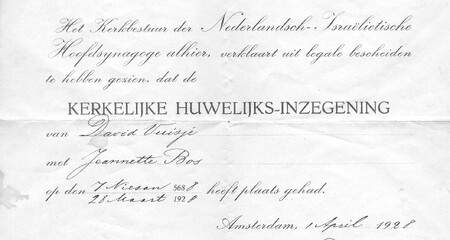 Het Kerkbestuur der Nederlandsch-Israëlietische
Hoofdsynagoge alhier, verklaart uit legale bescheiden
te hebben gezien, dat de
KERKELIJKE HUWELIJKS-INZEGENING
van David Vuisje
met Jeannette Bos
op den 7 Niesan 5688 heeft plaats gehad.
28 Maart 1928
Amsterdam, 1 April 1928